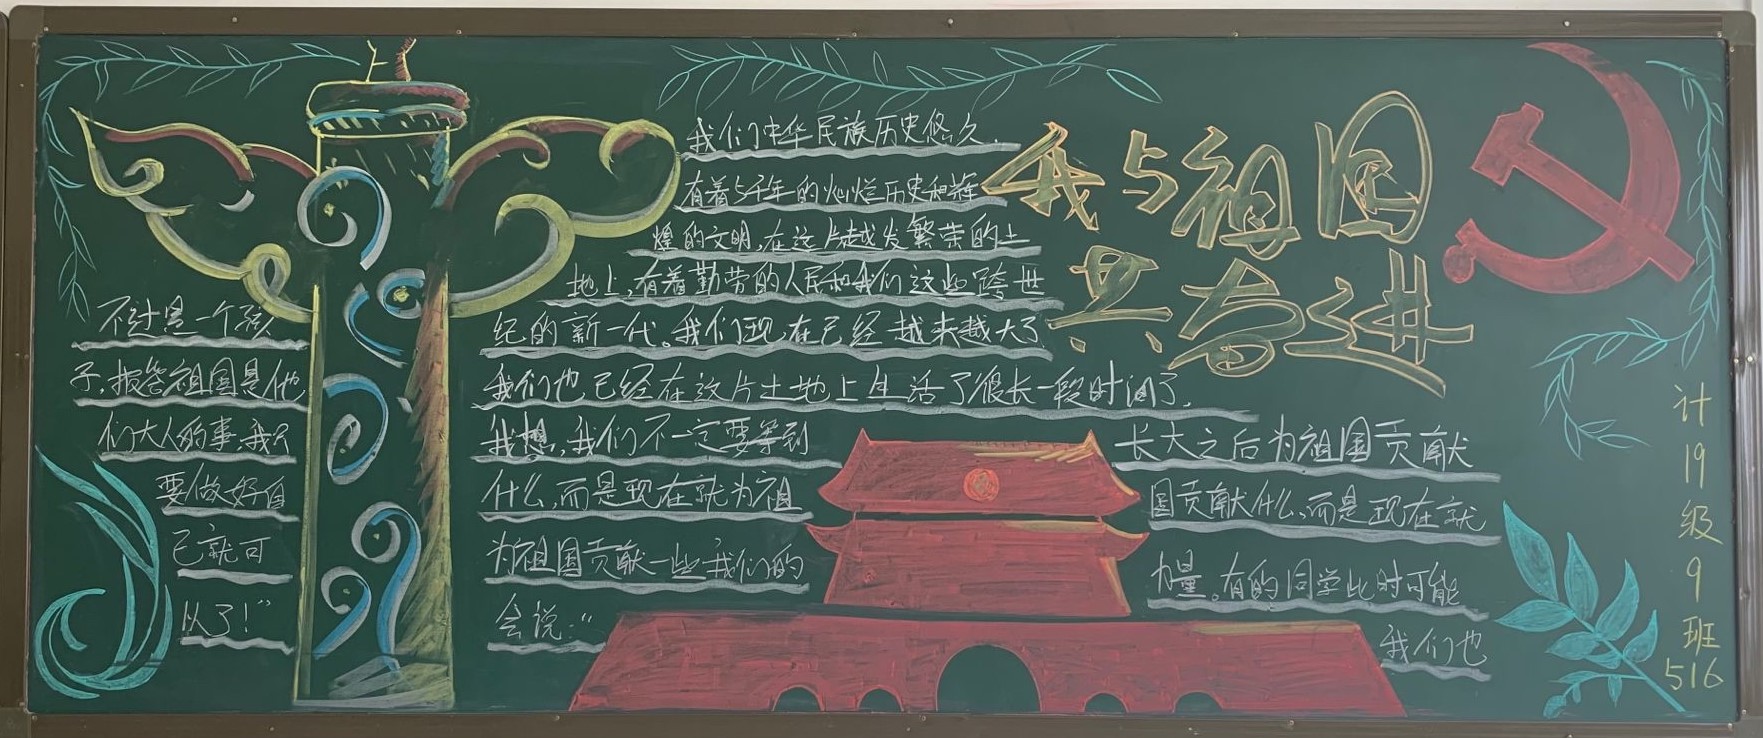 我与祖国
共奋进
我们中华民族历史悠久,
有着5千年的灿烂历史和辉
煌的文明,在这片越发繁荣的土
地上,有着勤劳的人民和我们这些跨世
纪的新一代。我们现在已经越来越大了
我们也已经在这片土地上生活了很长一段时间了,
我想,我们不一定要等到 长大之后为祖国贡献
什么,而是现在就为祖 国贡献什么,而是现在就
为祖国贡献一些我们的 力量。有的同学此时可能
会说:“ 我们也
不过是一个孩
子,报答祖国是他
们大人的事,我只
要做好自
己就可
以了!”
计19级9班
516